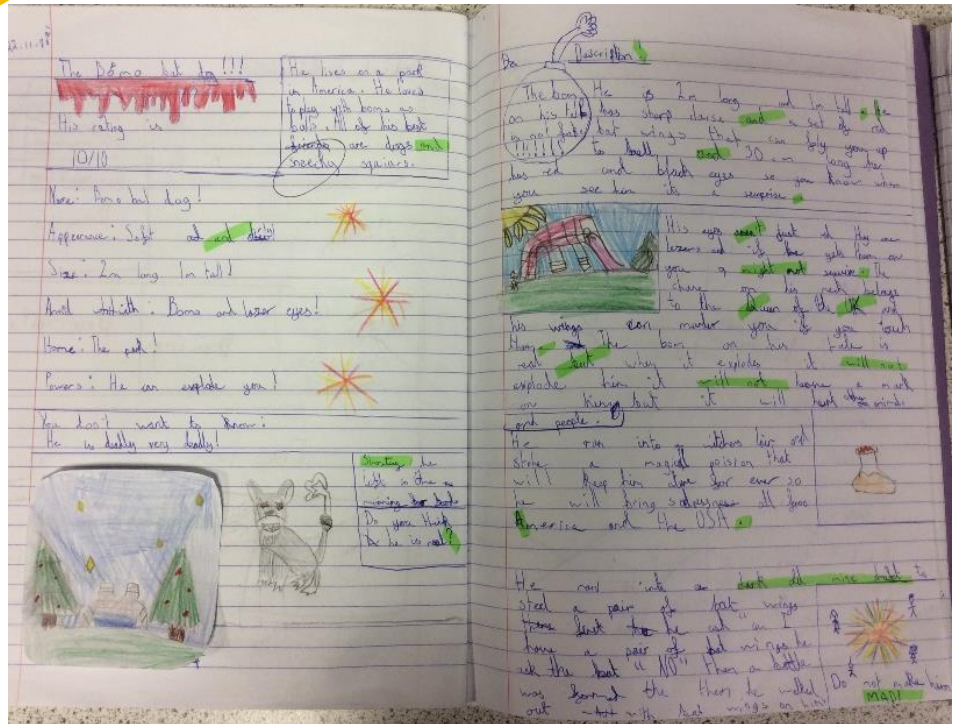 The Bomo bat dog!!!
His rating is
10/10
He lives on a park
in America. He loves
to play with boms as
balls. All of his best
friends are dogs and
sneechy squiares.
Name: Bomo bat dog!
Appearance: Soft and
Size: 2m long 1m tall!
Boms and lazer eyes!
Home: The park!
Powers: He can explode you!
You don't want to know:
He is deadly very deadly!
he
left in the
Do you think
he is real?
Description
The bom
on his tale
is not fake
!!!!!!!
He is 2m long and 1m tall. He
has sharp and a set of red
bat wings that can fly you up
to hell and 30 m long he
has red and black eyes so you know when
you see him its a surprise.
His eyes aren't just red they are
lazers and if he gets them on
you you might not survive. The
on his neck belongs
to the Queen of the UK and
his wings can murder you if you touch
them. The bom on his tale is
real but when it explodes it will not
explode him it will not leave a mark
on him but it will hurt other animals
and people.
He ran into a witches lair and
stole a magical poision that
will keep him alive for ever so
he will bring sadnessness all from
America and the USA.
He ran into a dark old mine to
steel a pair of bat wings
first he ask "can I
have a pair of bat wings" he
ask the bat "NO" then a battle
was formed the then he walked
out with bat wings on him!
Do not make him
MAD!